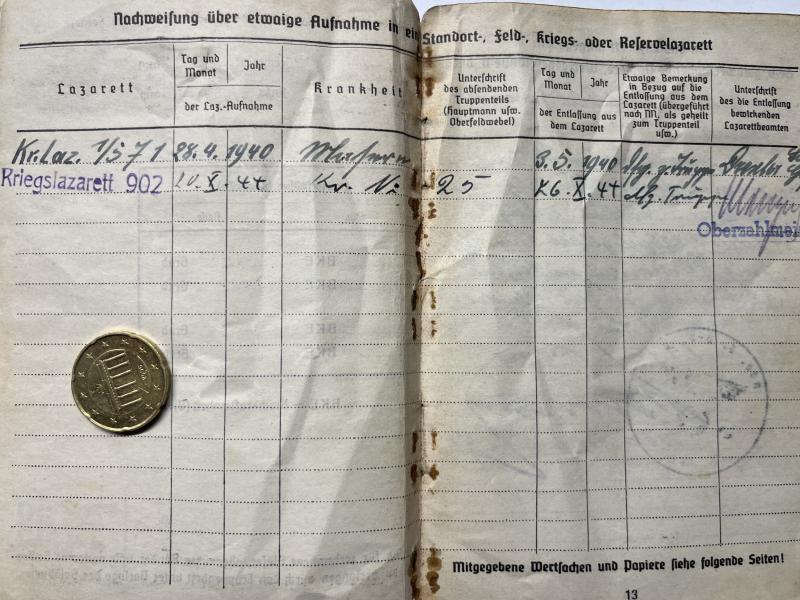 Nachweisung über etwaige Aufnahme in ein
Standort-, Feld-, Kriegs- oder Reservelazarett
Lazarett
Tag und Monat
Jahr
der Laz.-Aufnahme
Krankheit
Unterschrift
des absendenden
Truppenteils
(Hauptmann usw.
Oberfeldwebel)
Tag und Monat
Jahr
der Entlassung aus
dem Lazarett
Etwaige Bemerkung
in Bezug auf die
Entlassung aus dem
Lazarett (übergeführt
nach NN. als geheilt
zum Truppenteil
usw.)
Unterschrift
des die Entlassung
bewirkenden
Lazarettbeamten
Kr. Laz. 1/571 28.4. 1940 Masern 3.5. 1940
Kriegslazarett 902 X. 44 Kr. 25 26. X. 44
Mitgegebene Wertsachen und Papiere siehe folgende Seiten!
13